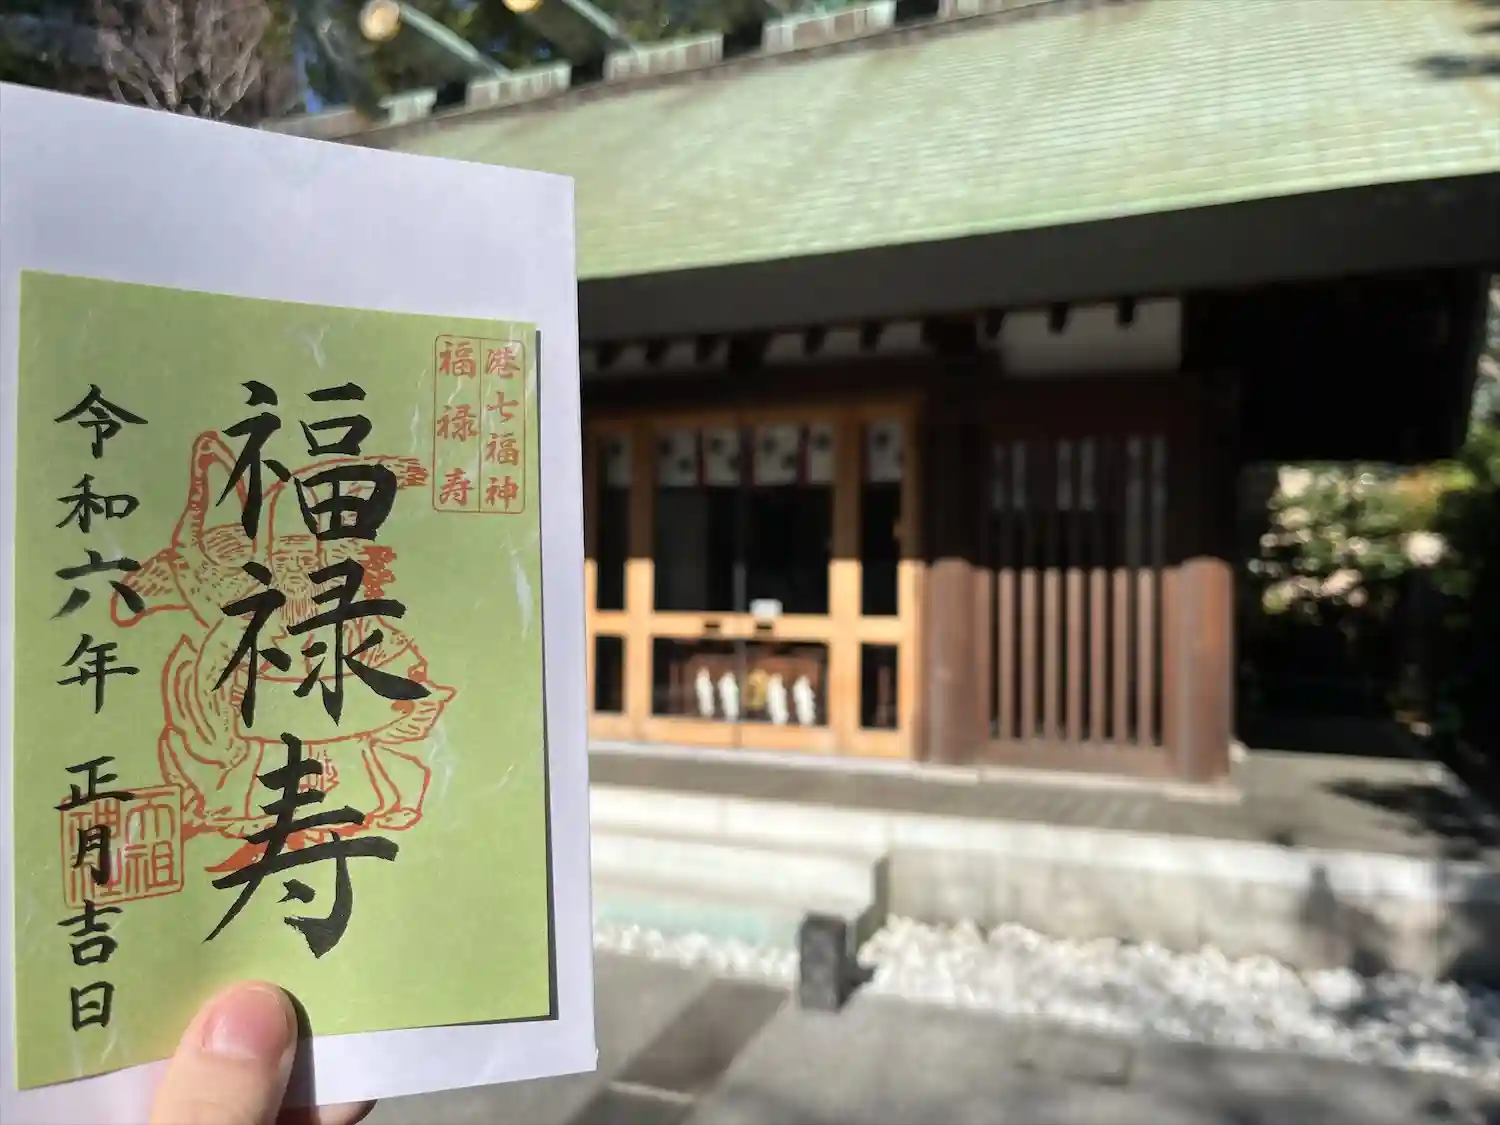 港七福神
福禄寿
福禄寿
令和六年 正月吉日
六祖
神社